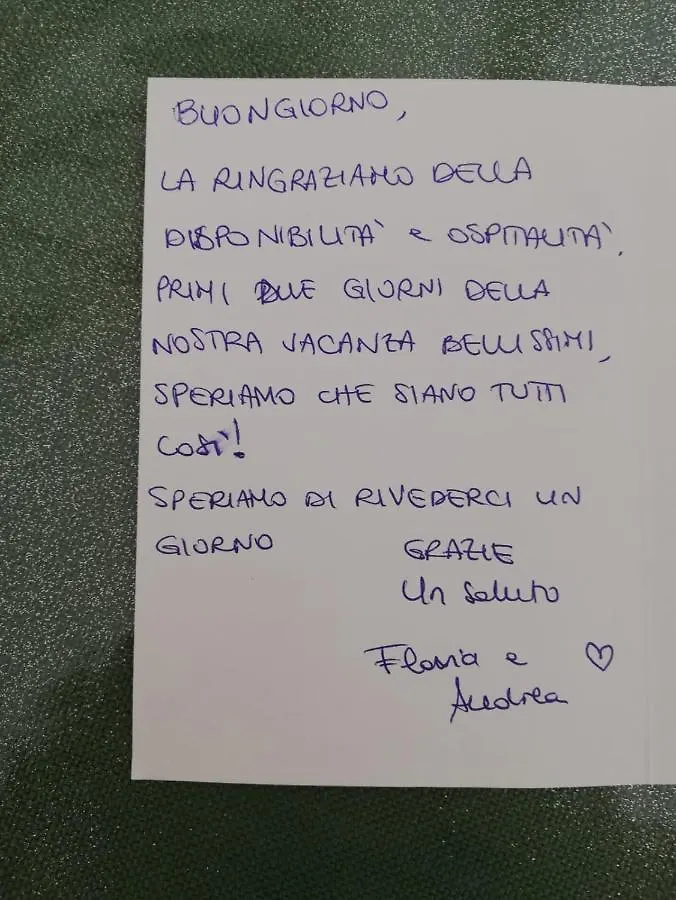 BUONGIORNO,
LA RINGRAZIAMO DELLA
DISPONIBILITA' e OSPITALITA'.
PRIMI DUE GIORNI DELLA
NOSTRA VACANZA BELLISSIMI,
SPERIAMO CHE SIANO TUTTI
COSI'!
SPERIAMO DI RIVEDERCI UN
GIORNO
GRAZIE
Un saluto
Flavia e ♡
Andrea